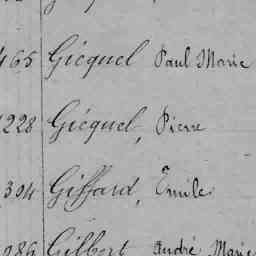 465 Gicquel Paul Marie
228 Gicquel, Pierre
304 Giffard, Emile
086 Gilbert André Marie